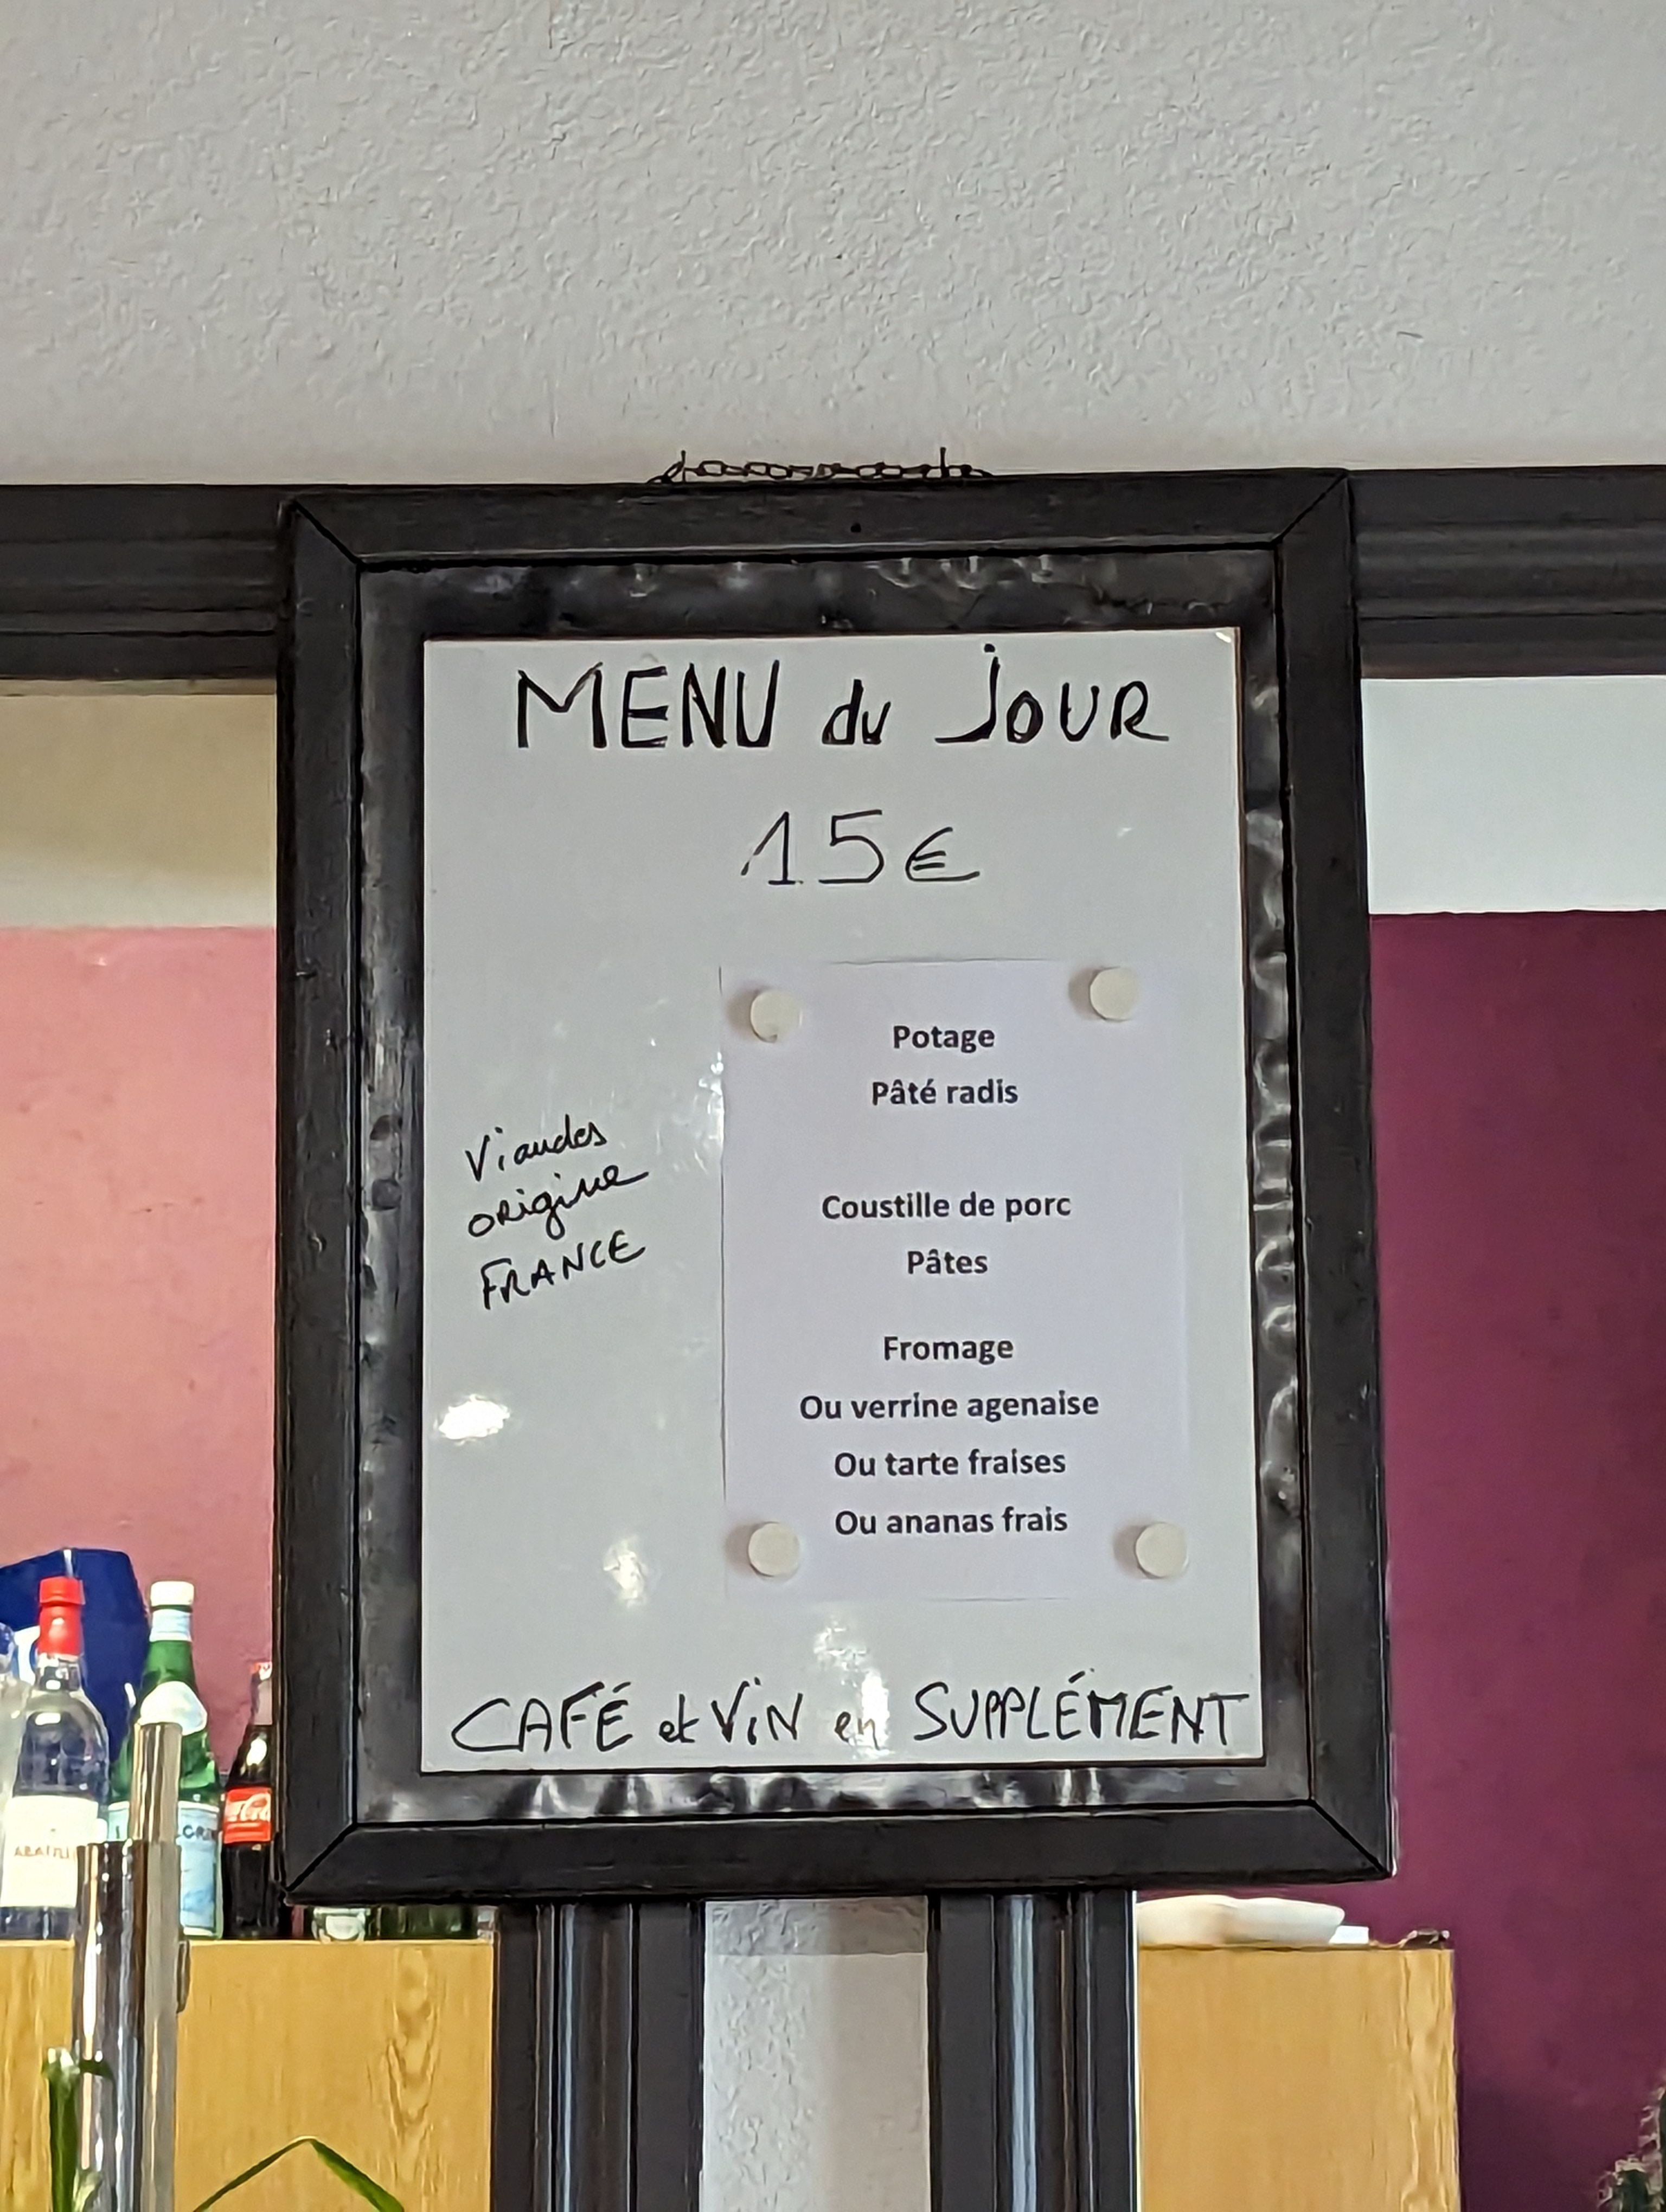 MENU du JOUR
15€
Potage
Pâté radis
Viandes
origine
FRANCE
Coustille de porc
Pâtes
Fromage
Ou verrine agenaise
Ou tarte fraises
Ou ananas frais
CAFÉ et ViN en SUPPLÉMENT